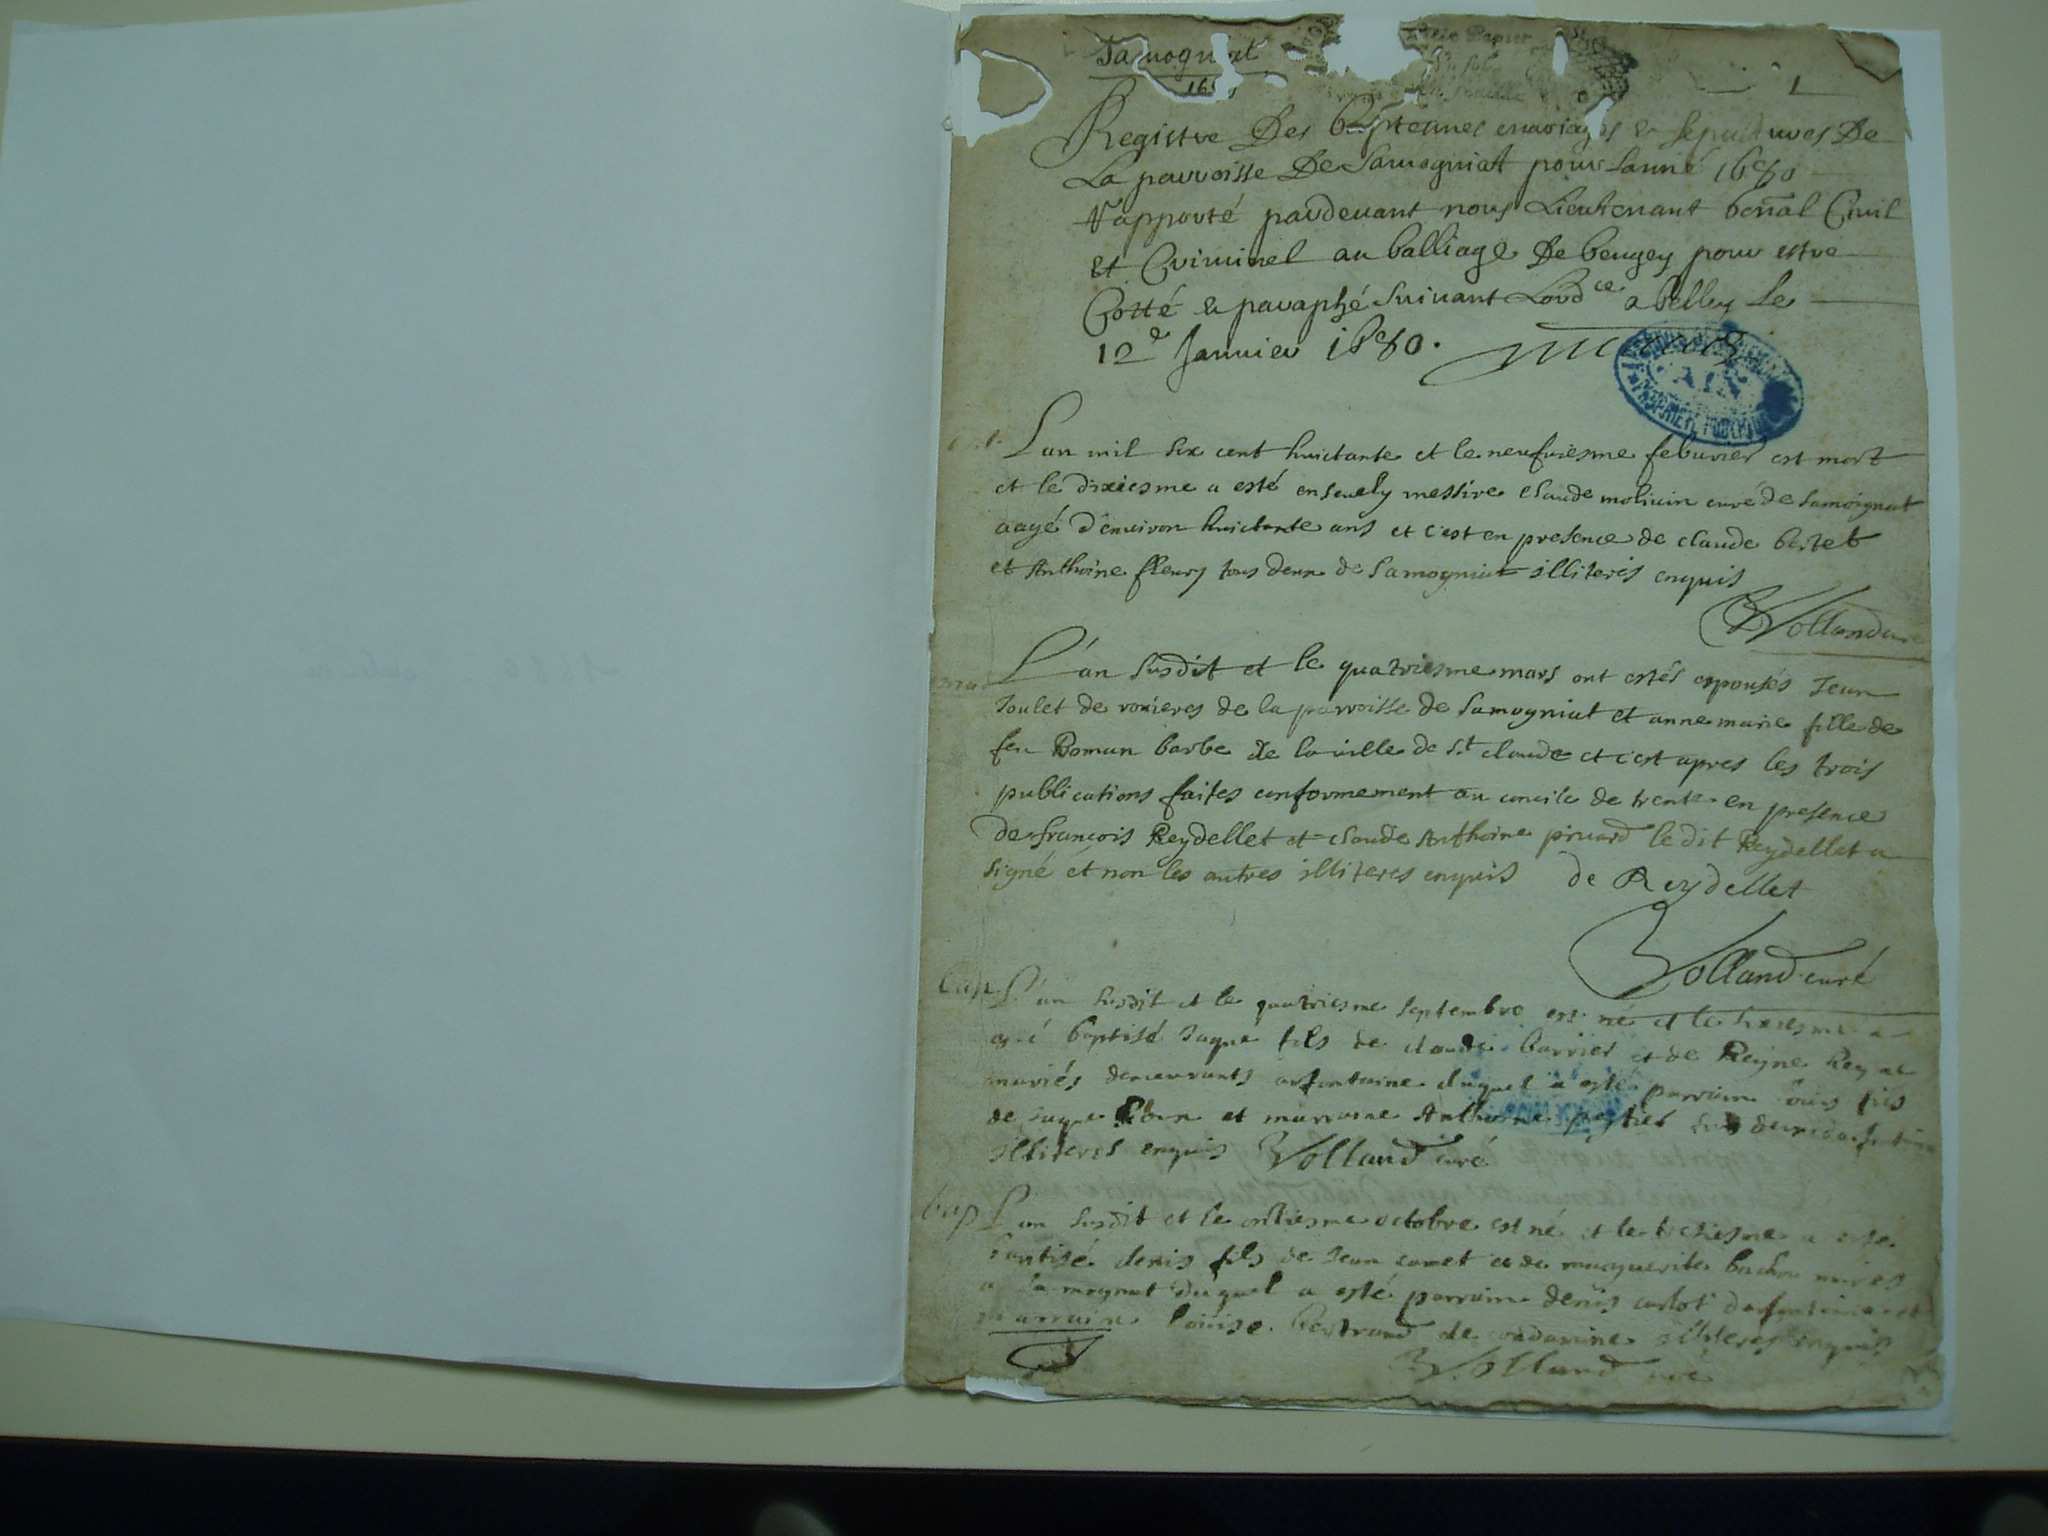 Samogniat
1
Registre Des baptesmes mariages & sepultures De
La parroisse De Samogniatt pour Lanné 1680
Rapporté pardevant nous Lieutenant Civil
et Criminel au balliage De beugey pour estre
Cotté & paraphé suivant Lordce a belley Le
12e Janvier 1680.
AIN
L'an mil six cent huictante et le neufviesme febuvrier est mort
et le dixiesme a esté ensevely messire claude molinin curé de samoignat
aagé d'environ huictante ans et c'est en presence de claude
et Anthoine fleury tous deux de Samogniat illiterés enquis
Volland curé
L'an susdit et le quatriesme mars ont estés espousés Jean
Joulet de de la parroisse de Samogniat et anne marie fille de
feu Roman barbe de la ville de St claude et c'est apres les trois
publications faites conformement au concile de trente en presence
de francois Reydellet et claude Anthoine le dit Reydellet a
signé et non les autres illiteres enquis de Reydellet
Volland curé
bap L'an susdit et le quatriesme septembre est né et le a
esté baptisé Jaque fils de claude barrier et de Reyne
mariés demeurants duquel a esté parrain fils
de Jaque et marraine Anthoine
illiteres enquis Volland curé
bap L'an susdit et le octobre est né et le a esté
baptisé denis fils de Jean et de marguerite
a Samognat duquel a esté parrain denis
marraine louise de illiteres enquis
Volland curé